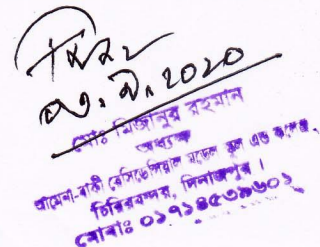 ২০২০
মোঃ মিজানুর রহমান
অধ্যক্ষ
আমেনা-বাকী রেসিডেন্সিয়াল মডেল স্কুল এন্ড কলেজ,
চিরিরবন্দর, দিনাজপুর।
মোবাঃ ০১৭১৪৫৩৯৬০১